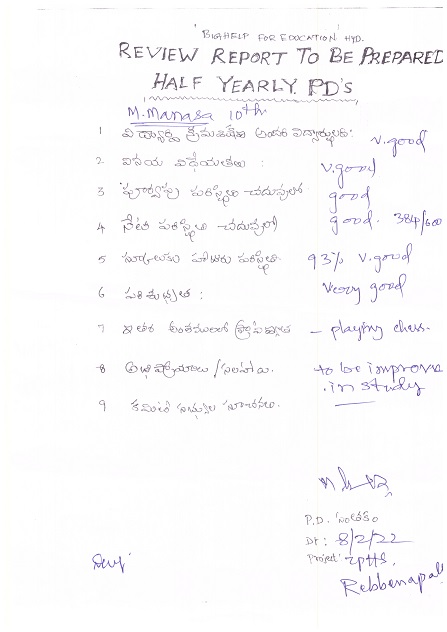 BIGHELP FOR EDUCATION HYD.
REVIEW REPORT TO BE PREPARED
HALF YEARLY PD's
M. Manasa 10th
1 విద్యార్థి క్రమశిక్షణ v.good
2 వినయ విధేయతలు : v.good
3 పూర్వపు పరిస్థితి చదువులో good
4 నేటి పరిస్థితి చదువులో good. 384/600
5 స్కూలుకు హాజరు పరిస్థితి 93% v.good
6 పరిశుభ్రత : very good
7 ఇతర అంశములలో – playing chess.
8 అభిప్రాయాలు/సలహాలు. to be improve
in study
9 కమిటీ సభ్యుల సూచనలు.
P.D. సంతకం
Dt: 8/2/22
Project ZPHS,
Rebbenapall